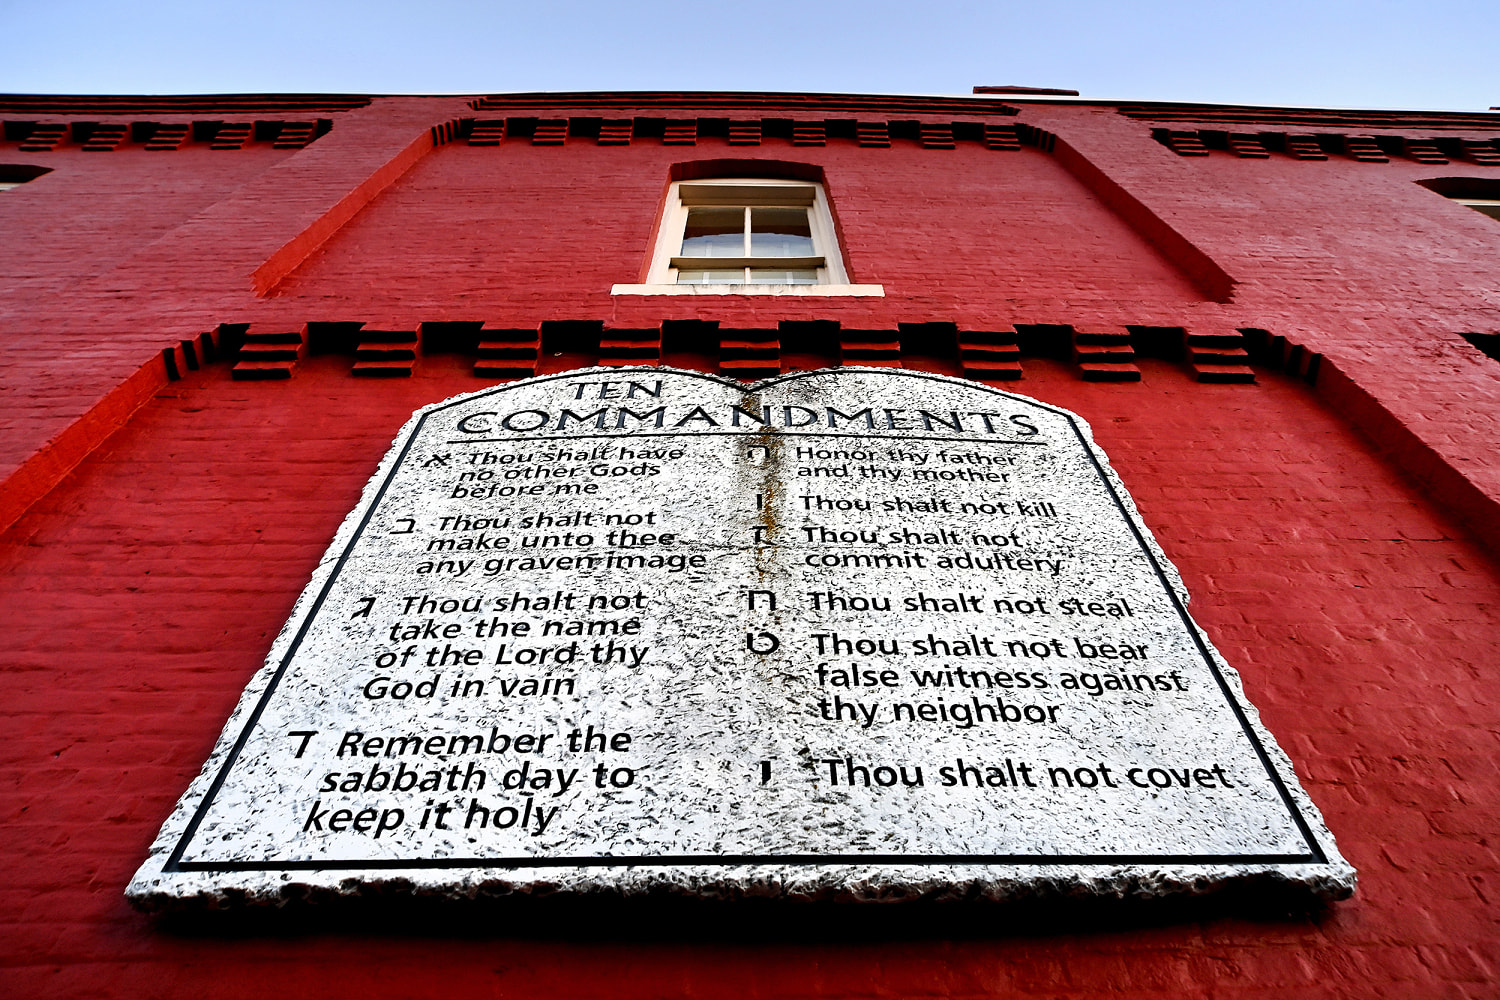 TEN
COMMANDMENTS
א Thou shalt have
no other Gods
before me
ב Thou shalt not
make unto thee
any graven image
ג Thou shalt not
take the name
of the Lord thy
God in vain
ד Remember the
sabbath day to
keep it holy
ה Honor thy father
and thy mother
ו Thou shalt not kill
ז Thou shalt not
commit adultery
ח Thou shalt not steal
ט Thou shalt not bear
false witness against
thy neighbor
י Thou shalt not covet